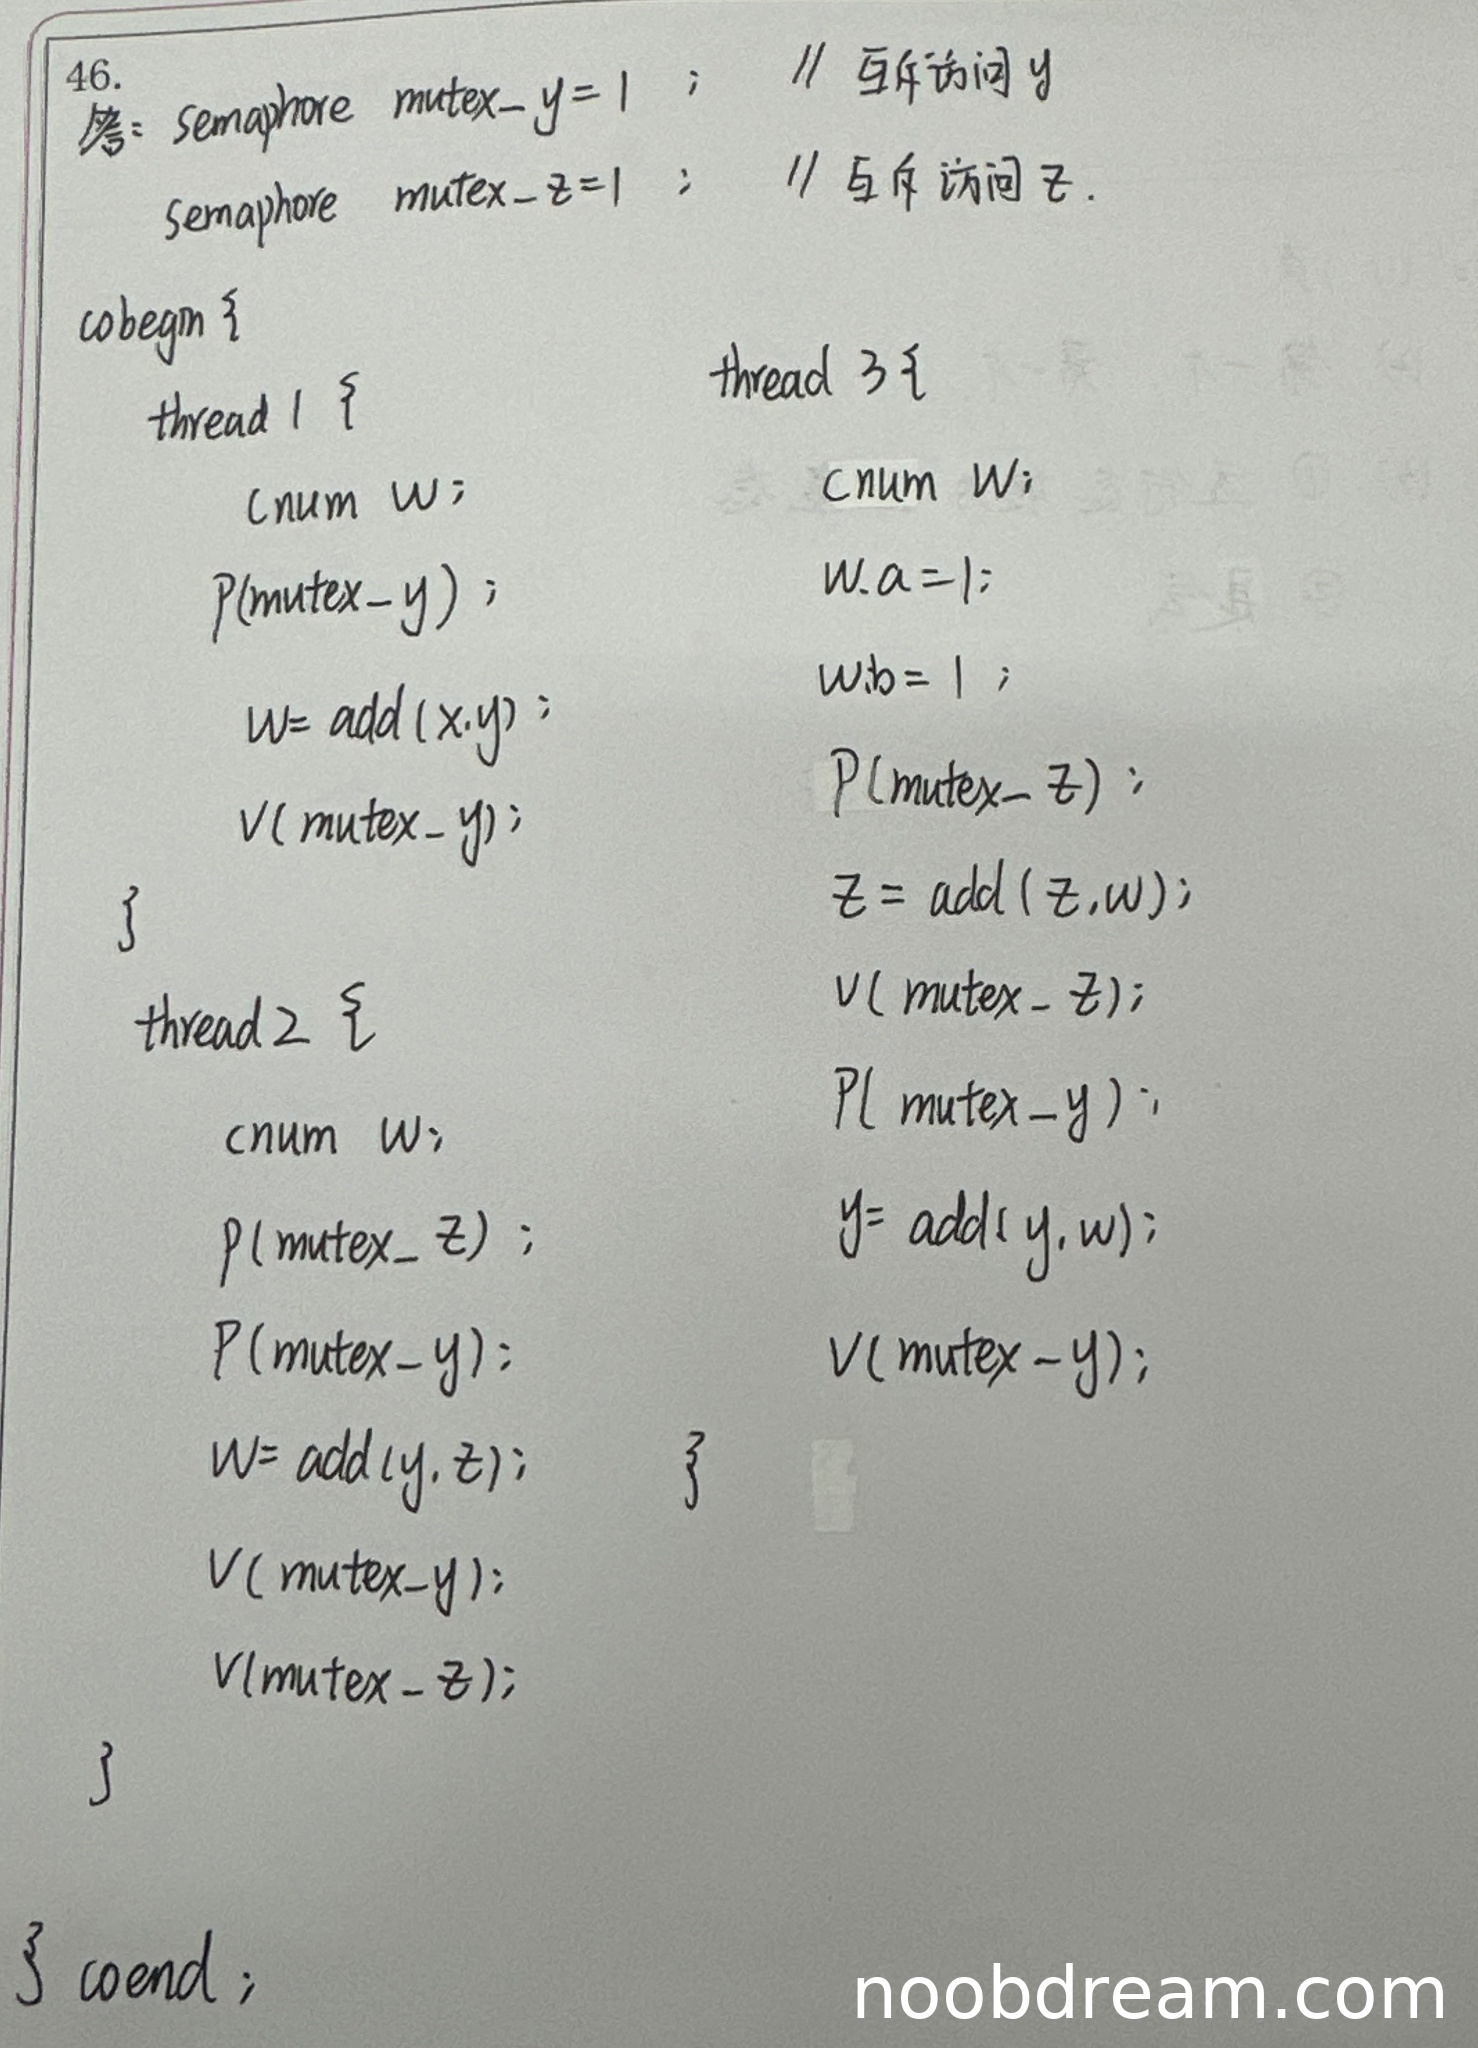 46.
答: semaphore mutex_y=1 ; // 互斥访问 y
semaphore mutex_z=1 ; // 互斥访问 z.
cobegin {
thread 1 {
cnum w;
P(mutex_y) ;
w= add(x,y) ;
V(mutex_y);
}
thread 2 {
cnum w;
P(mutex_z) ;
P(mutex_y);
w= add(y,z);
V(mutex_y);
V(mutex_z);
}
thread 3 {
cnum w;
w.a=1;
w.b=1 ;
P(mutex_z) ;
z = add(z,w);
V(mutex_z);
P(mutex_y) ;
y= add(y,w);
V(mutex_y);
}
} coend ;
noobdream.com